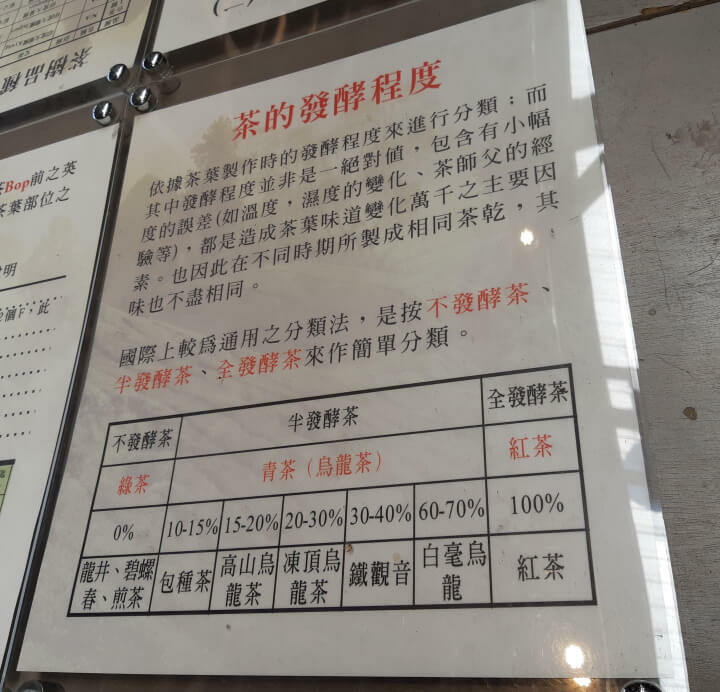 茶樹品種
(一)
茶的發酵程度
依據茶葉製作時的發酵程度來進行分類；而
其中發酵程度並非是一絕對值，包含有小幅
度的誤差(如溫度，濕度的變化、茶師父的經
驗等)，都是造成茶葉味道變化萬千之主要因
素。也因此在不同時期所製成相同茶乾，其
味也不盡相同。
國際上較爲通用之分類法，是按不發酵茶、
半發酵茶、全發酵茶來作簡單分類。
不發酵茶 半發酵茶 全發酵茶
綠茶 青茶（烏龍茶） 紅茶
0% 10-15% 15-20% 20-30% 30-40% 60-70% 100%
龍井、碧螺春、煎茶 包種茶 高山烏龍茶 凍頂烏龍茶 鐵觀音 白毫烏龍 紅茶
Bop前之英
茶葉部位之
明
F，此